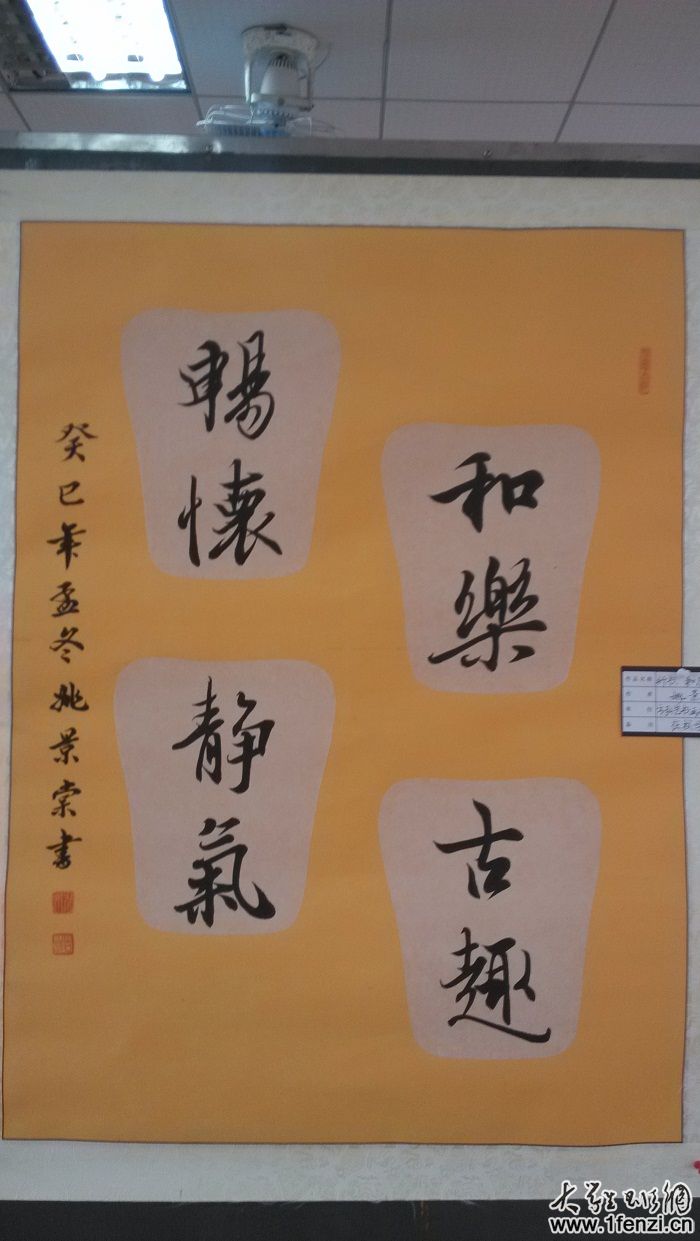 和樂
古趣
暢懷
静氣
癸巳年孟冬姚景棠書
大学生在线网
www.1fenzi.cn